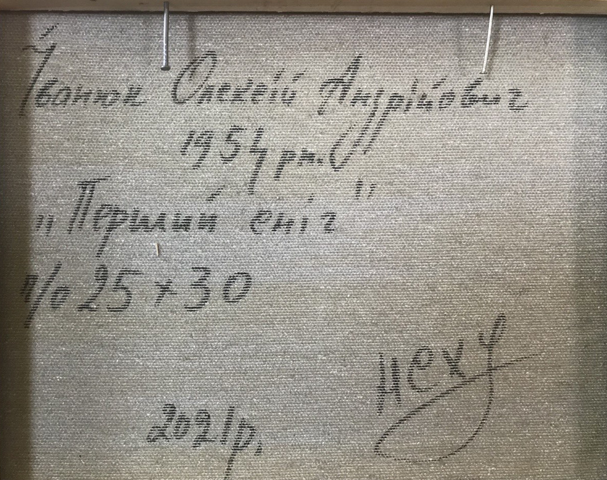 Іванюк Олексій Андрійович
1954 р.н.
„Перший сніг"
п/о 25 х 30
НСХУ
2021р.